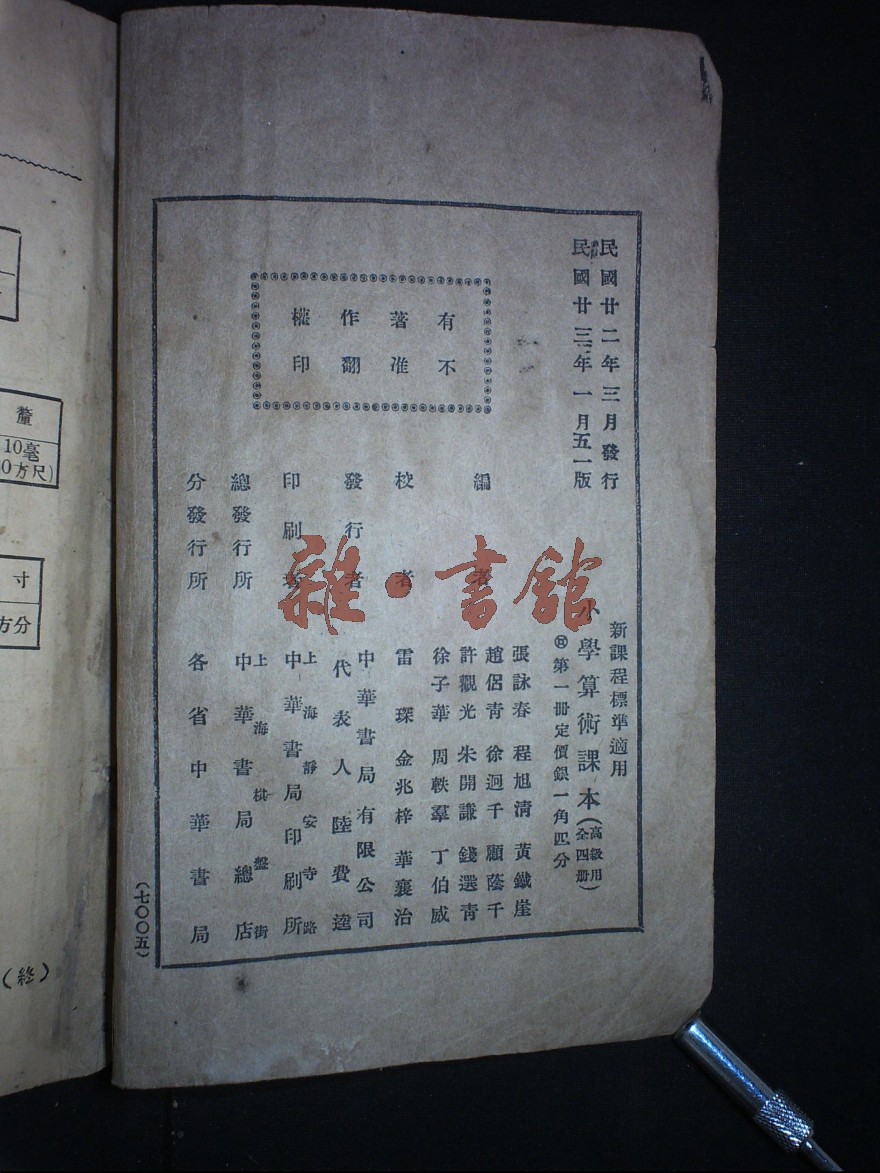 民國廿二年三月發行
民國廿三年一月五一版
有著作權
不准翻印
新課程標準適用
小學算術課本(高級用全四冊)
第一冊定價銀一角四分
編者
張詠春 程旭清 黃鐵崖
趙侶青 徐迥千 顧蔭千
許觀光 朱開謙 錢選青
徐子華 周軼羣 丁伯威
校者
雷琛 金兆梓 華襄治
發行者
中華書局有限公司
代表人 陸費逵
印刷者
上海靜安寺路
中華書局印刷所
總發行所
上海棋盤街
中華書局總店
分發行所
各省中華書局
(七〇〇五)
釐
10毫
0方尺)
寸
方分
(終)
雜·書館